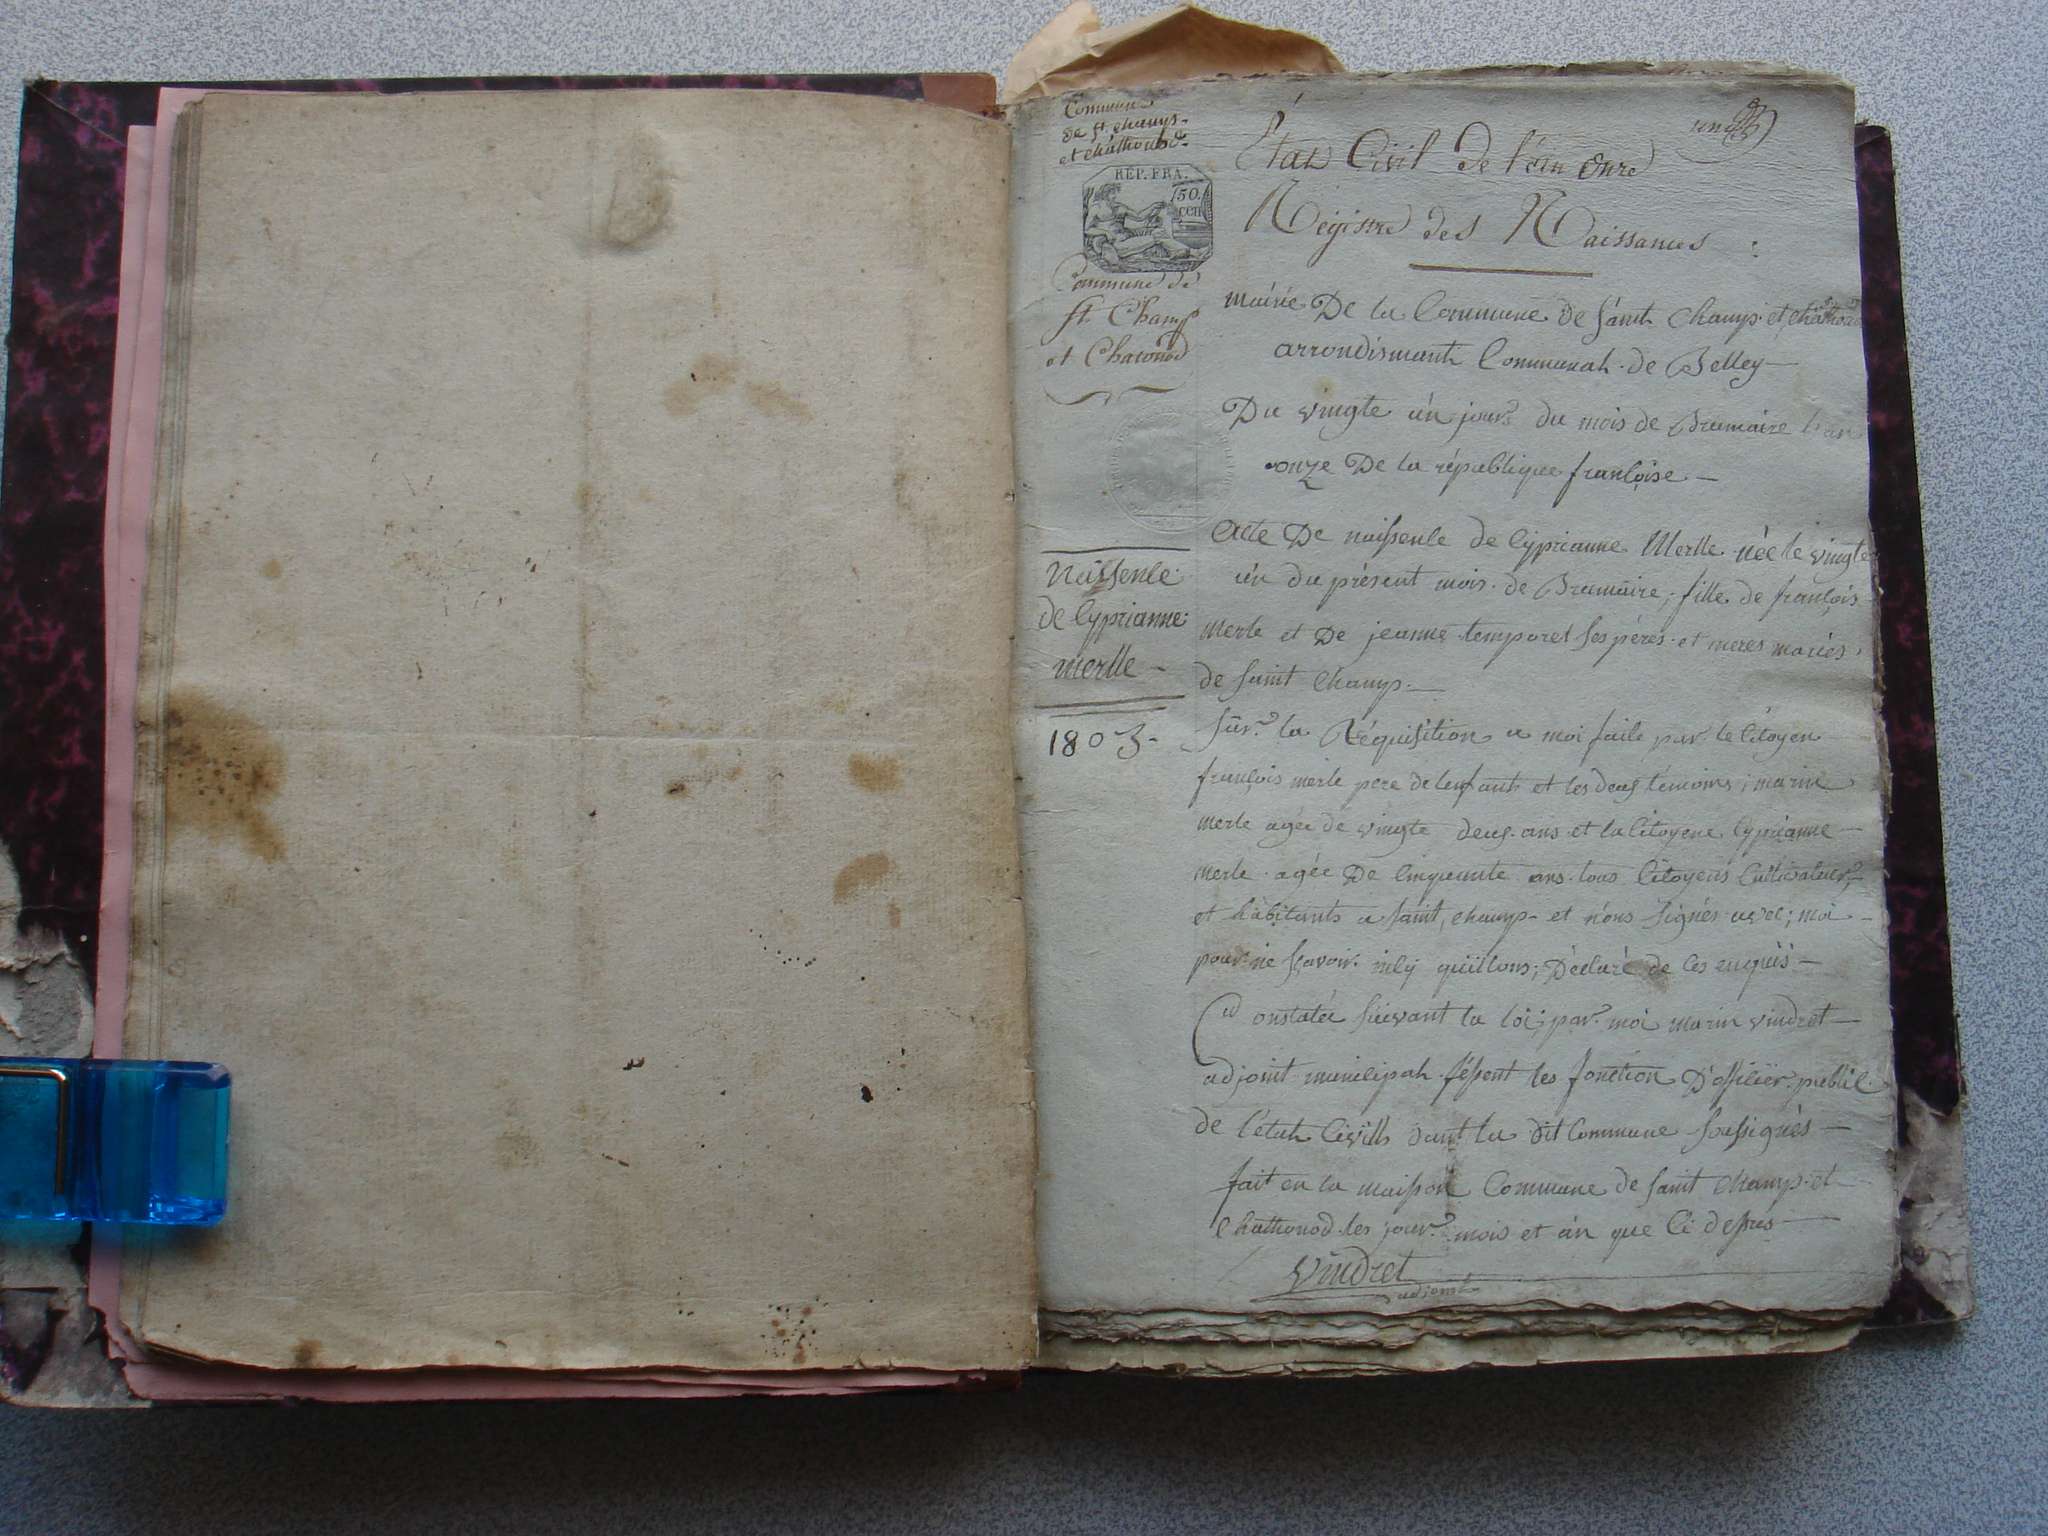 Commune
de st. champs-
et châthonod-
REP. FRA.
50.
cen
Commune de
st. Champ
et Chatonod
État Civil de l'én onze
Régistre des Naissances :
mairie De la Commune de saint champ. et châthonod
arrondismant Communah. de Belley —
Du vingte ún jour du mois de Brumaire l'an
onze De la républiquee françoise —
Naissence
de Cyprianne
merlle -
1803-
Acte De naissence de Cyprianne Merlle née le vingte
ún du présent mois de Brumaire; fille de françois
merle et De jeanne temporel ses pères et meres mariés
de saint champ. —
sur la Réquisition a moi faite par le Citoyen
françois merle pere de lenfant et les deus témoins; marin
merle agée de vingte deus ans et la Citoyene Cyprianne —
merle agée De Cinquante ans. tous Citoyens Cultivateur,-
et habitants a saint, champ- et n'ons signés avec; moi —
pour ne sçavoir. ; Déclaré de ces enquis —
Constatée suivant la loi; par moi marin vindret —
adjoint municipah. fésent les fonction D'officiër. public.
de l'etah Civills dant la dit Commune soussignés —
fait en la maison Commune de saint champ. et —
Chathonod. les jour mois et án que Ci desus —
Vindret
adjoint